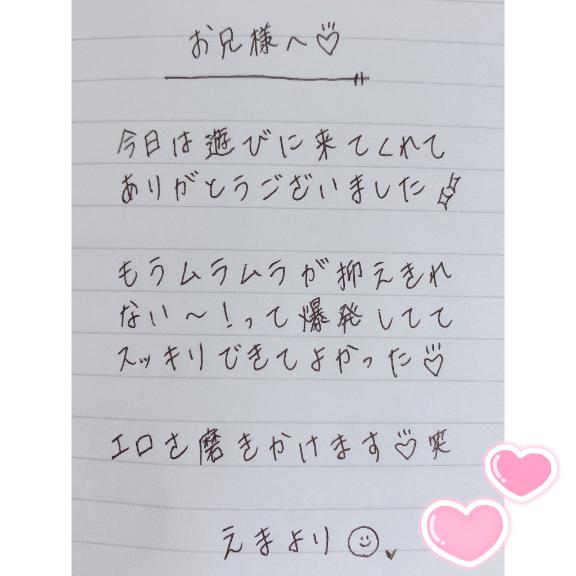 お兄様へ♡
今日は遊びに来てくれて
ありがとうございました
もうムラムラが抑えきれ
ない〜!って爆発してて
スッキリできてよかった♡
エロさ磨きかけます♡笑
えまより